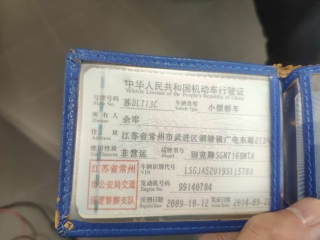 中华人民共和国机动车行驶证
Vehicle License of the People's Republic of China
号牌号码 苏DL713C 车辆类型 小型轿车
Plate No. Vehicle Type
所有人 余军
住址 江苏省常州市武进区湖塘镇广电东路
使用性质 非营运 品牌型号 别克牌SGM7160MTA
车辆识别代号
VIN
发动机号码 99140784
江苏省常州
市公安局交通
巡逻警察支队
注册日期 2009-10-12 发证日期